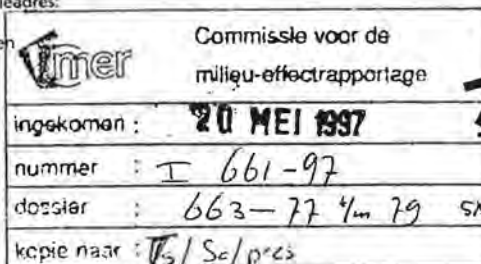 eadres:
en
mer
Commissie voor de
milieu-effectrapportage
ingekomen : 20 MEI 1997
nummer : I 661-97
dossier : 663-77 t/m 79
kopie naar : /Sc/